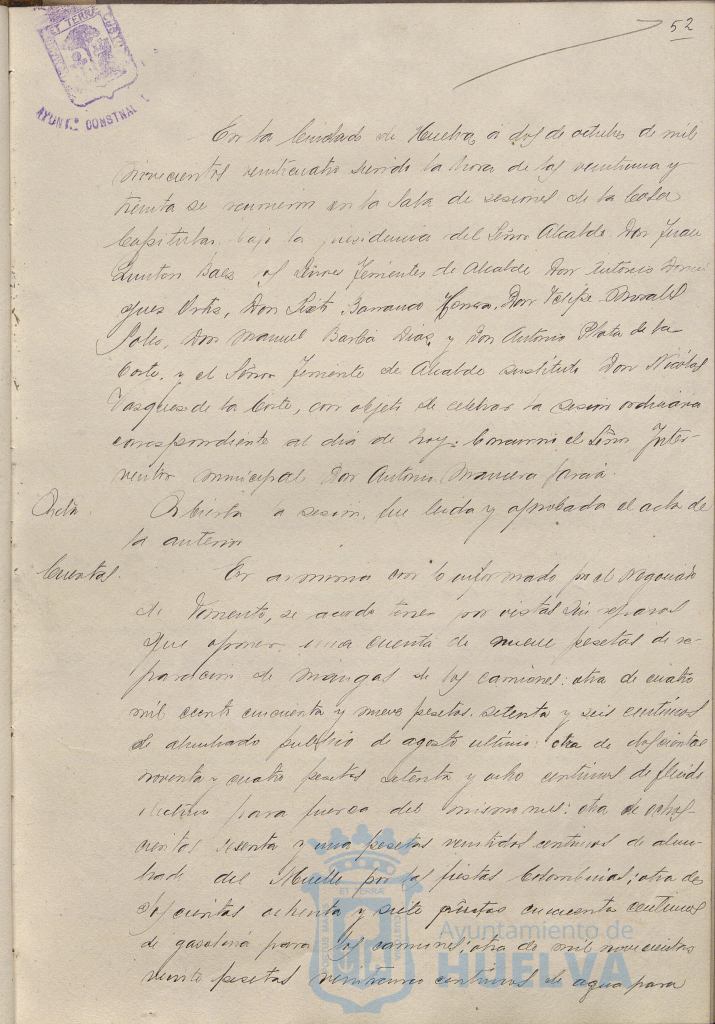 52
AYUNT.º CONSTNAL
En la Ciudad de Huelva, a dos de octubre de mil
novecientos veinticuatro siendo la hora de las veintiuna y
treinta se reunieron en la Sala de sesiones de la Casa
Capitular bajo la presidencia del Señor Alcalde Don Juan
Quintero Baez los Señores Tenientes de Alcalde Don Antonio Domin
guez Ortiz, Don Sixto Barranco, Don Felipe Morales
Don Manuel Barba Diaz, y Don Antonio Plata de la
Corte, y el Señor Teniente de Alcalde sustituto Don Nicolás
Vazquez de la Corte, con objeto de celebrar la sesion ordinaria
correspondiente al dia de hoy: Concurrió el Señor Inter-
ventor municipal Don Antonio Garcia.
Acta. Abierta a sesion, fue leida y aprobada el acta de
la anterior
Cuentas. En armonia con lo informado por el Negociado
de Fomento, se acordó tener por vistas sin reparos
que oponer, una cuenta de nueve pesetas de re
paracion de mangas de los camiones: otra de cuatro
mil ciento cincuenta y nueve pesetas setenta y seis centimos
de alumbrado publico de agosto ultimo: otra de doscientas
noventa y cuatro pesetas setenta y ocho centimos de fluido
electrico para fuerza del mismo mes: otra de ochos-
cientas sesenta y una pesetas veintidos centimos de alum-
brado del Muelle por las fiestas Colombinas; otra de
doscientas ochenta y siete pesetas cincuenta centimos
de gasolina para los camiones; otra de mil novecientas
veinte pesetas veintiuno centimos de agua para
Ayuntamiento de
HUELVA